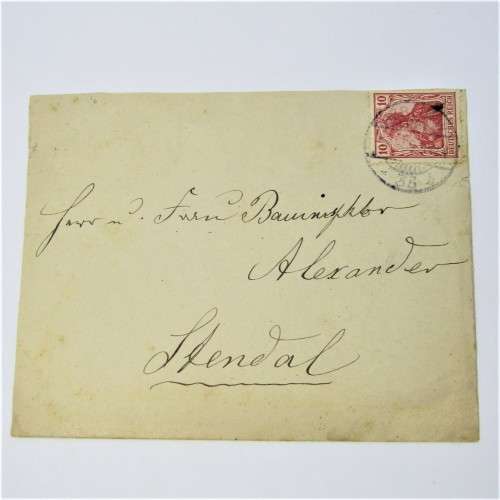 10 10
DEUTSCHES REICH
Herr u. Frau Bauinspektor
Alexander
Stendal